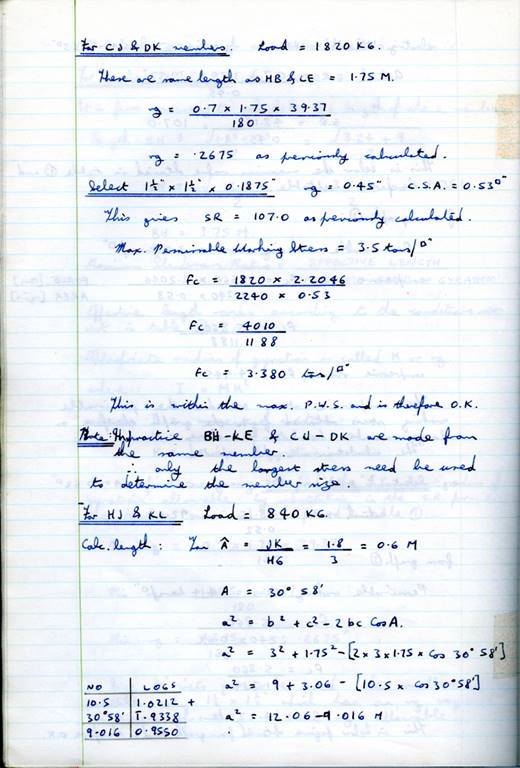 For CJ & DK members. Load = 1820 KG.
These are same length as HB & LE = 1.75 M.
rg = 0.7 x 1.75 x 39.37
180
rg = .2675 as previously calculated.
Select 1½" x 1½" x 0.1875" rg = 0.45" C.S.A. = 0.53□"
This gives SR = 107.0 as previously calculated.
Max. Permissable Working Stress = 3.5 tons/□"
Fc = 1820 x 2.2046
2240 x 0.53
Fc = 4010
1188
Fc = 3.380 tons/□"
This is within the max. P.W.S. and is therefore O.K.
Note: In practice BH-LE & CJ-DK are made from
the same member.
∴ only the largest stress need be used
to determine the member size.
For HJ & KL Load = 840 KG.
Calc. length: Tan Â = JK = 1.8 = 0.6 M
HG 3
A = 30° 58'
a² = b² + c² - 2bc Cos A.
a² = 3² + 1.75² - [2 x 3 x 1.75 x Cos 30° 58']
a² = 9 + 3.06 - [10.5 x Cos 30° 58']
a² = 12.06 - 9.016 M
NO LOGS
10.5 1.0212 +
30°58' 1̄.9338
9.016 0.9550